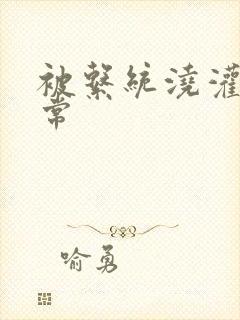 被繫統澆灌
常
喻勇